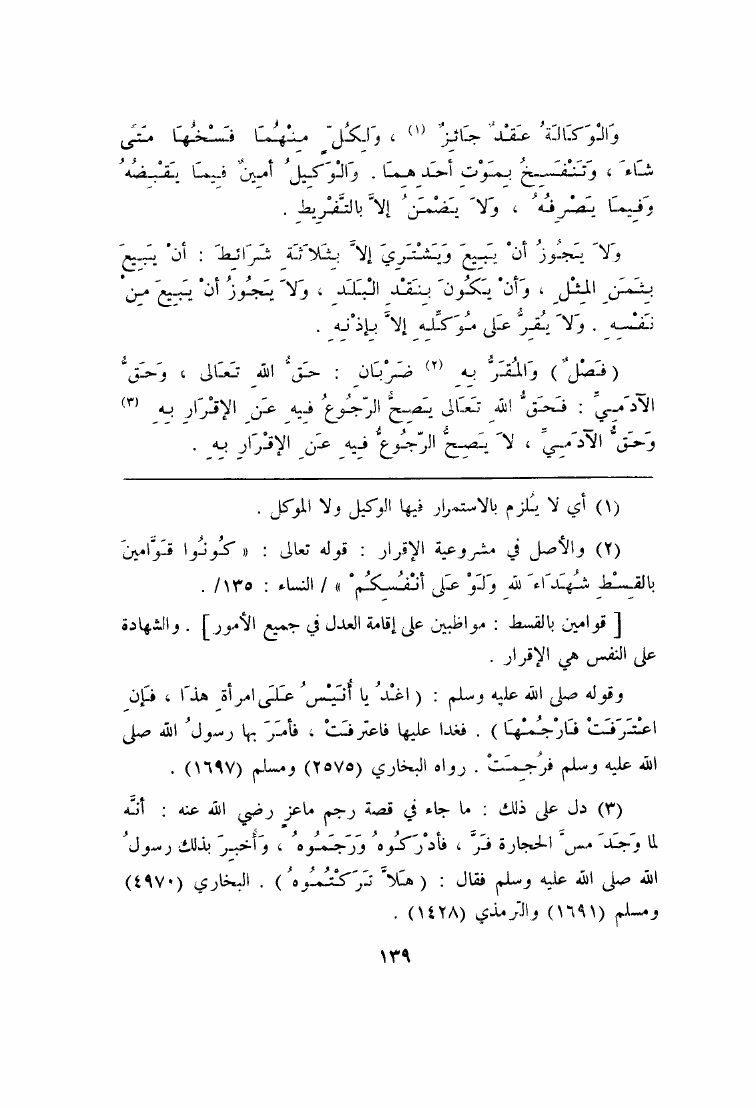 وَالْوَكَالَةُ عَقْدٌ جَائِزٌ (١) ، وَلِكُلٍّ مِنْهُمَا فَسْخُهَا مَتَى
شَاءَ ، وَتَنْفَسِخُ بِمَوْتِ أَحَدِهِمَا . وَالْوَكِيلُ أَمِينٌ فِيمَا يَقْبِضُهُ
وَفِيمَا يَصْرِفُهُ ، وَلاَ يَضْمَنُ إِلاَّ بِالتَّفْرِيطِ .
وَلاَ يَجُوزُ أَنْ يَبِيعَ وَيَشْتَرِيَ إِلاَّ بِثَلاَثَةِ شَرَائِطَ : أَنْ يَبِيعَ
بِثَمَنِ المِثْلِ ، وَأَنْ يَكُونَ بِنَقْدِ الْبَلَدِ ، وَلاَ يَجُوزُ أَنْ يَبِيعَ مِنْ
نَفْسِهِ . وَلاَ يُقِرُّ عَلَى مُوَكِّلِهِ إِلاَّ بِإِذْنِهِ .
( فَصْلٌ ) وَالمُقَرُّ بِهِ (٢) ضَرْبَانِ : حَقُّ اللهِ تَعَالَى ، وَحَقُّ
الآدَمِيِّ : فَحَقُّ اللهِ تَعَالَى يَصِحُّ الرُّجُوعُ فِيهِ عَنِ الإِقْرَارِ بِهِ (٣)
وَحَقُّ الآدَمِيِّ ، لاَ يَصِحُّ الرُّجُوعُ فِيهِ عَنِ الإِقْرَارِ بِهِ .
(١) أي لا يُلزم بالاستمرار فيها الوكيل ولا الموكل .
(٢) والأصل في مشروعية الإقرار : قوله تعالى : « كُونُوا قَوَّامِينَ
بالقِسْطِ شُهَدَاءَ للهِ وَلَوْ عَلَى أَنْفُسِكُمْ » / النساء : ١٣٥/ .
[ قوامين بالقسط : مواظبين على إقامة العدل في جميع الأمور ] . والشهادة
على النفس هي الإقرار .
وقوله صلى الله عليه وسلم : ( اغْدُ يا أُنَيْسُ عَلَى امرأةِ هذا ، فَإِنِ
اعْتَرَفَتْ فَارْجُمْهَا ) . فغدا عليها فاعترفتْ ، فأمَرَ بها رسولُ الله صلى
الله عليه وسلم فرُجِمَتْ . رواه البخاري (٢٥٧٥) ومسلم (١٦٩٧) .
(٣) دل على ذلك : ما جاء في قصة رجم ماعزٍ رضي الله عنه : أنَّه
لما وَجَدَ مسَّ الحجارة فَرَّ ، فأدْرَكُوهُ وَرَجَمُوهُ ، وَأُخبِرَ بذلك رسولُ
الله صلى الله عليه وسلم فقال : ( هَلاَّ تَرَكْتُمُوهُ ) . البخاري (٤٩٧٠)
ومسلم (١٦٩١) والترمذي (١٤٢٨) .
١٣٩